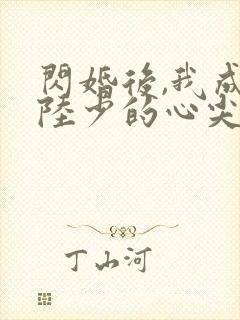 閃婚後,我成
陸少的心尖
丁山河